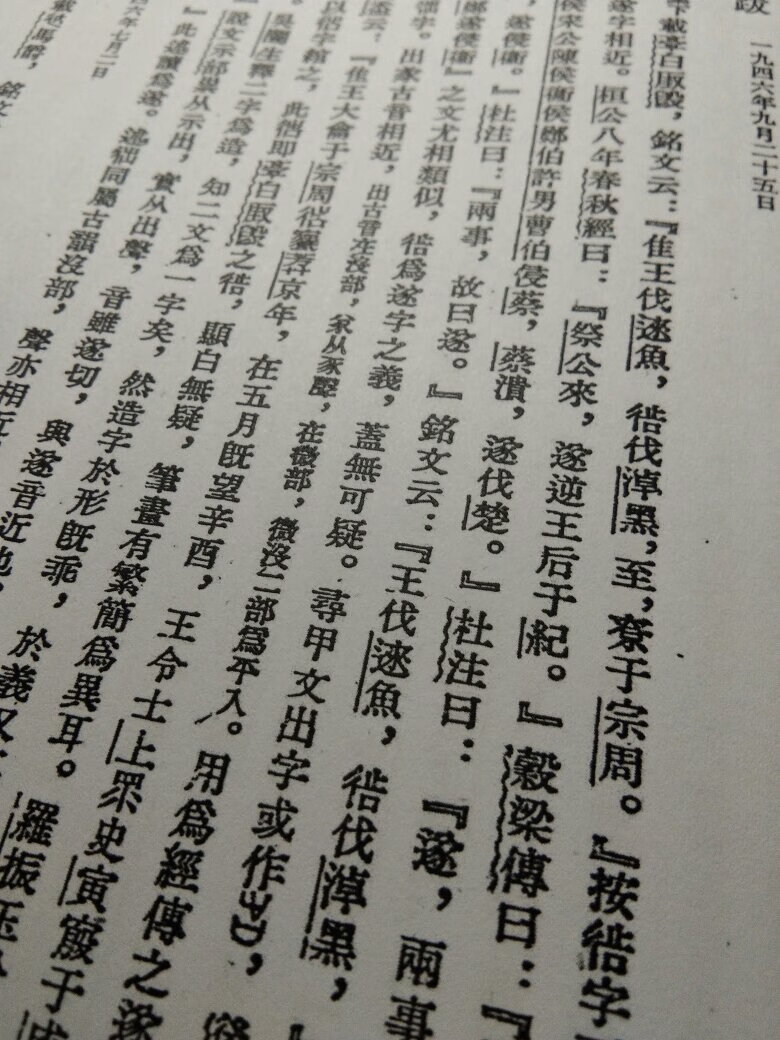 跋 一九四六年九月二十五日
載𦎫白取𣪘，銘文云：『隹王伐逨魚，𢓊伐淖黑，至，尞于宗周。』按𢓊字
遂字相近。桓公八年春秋經曰：『祭公來，遂逆王后于紀。』穀梁傳曰：『
侯宋公陳侯衞侯鄭伯許男曹伯侵蔡，蔡潰，遂伐楚。』杜注曰：『遂，兩事
遂侵衞。』杜注曰：『兩事，故曰遂。』銘文云：『王伐逨魚，𢓊伐淖黑，
鄭遂侵衞』之文尤相類似，𢓊爲遂字之義，蓋無可疑。尋甲文出字或作，
字。出㒸古音相近，出古音在沒部，㒸从豕聲，在微部，微沒二部爲平入。用爲經傳之遂
云：『隹王大龠于宗周𢓊京年，在五月旣望辛酉，王令士上眔史寅廏于
之，此𢓊即𦎫白取𣪘之𢓊，顯白無疑，筆畫有繁簡爲異耳。羅振玉
吳闓生釋二字爲造，知二文爲一字矣，然造字於形旣乖，於義又
說文示部祟从示出，實从出聲，音雖遂切，與遂音近也，
』此述讀爲遂。述同屬古韻沒部，聲亦相近
四六年七月二日
馬爵，銘文